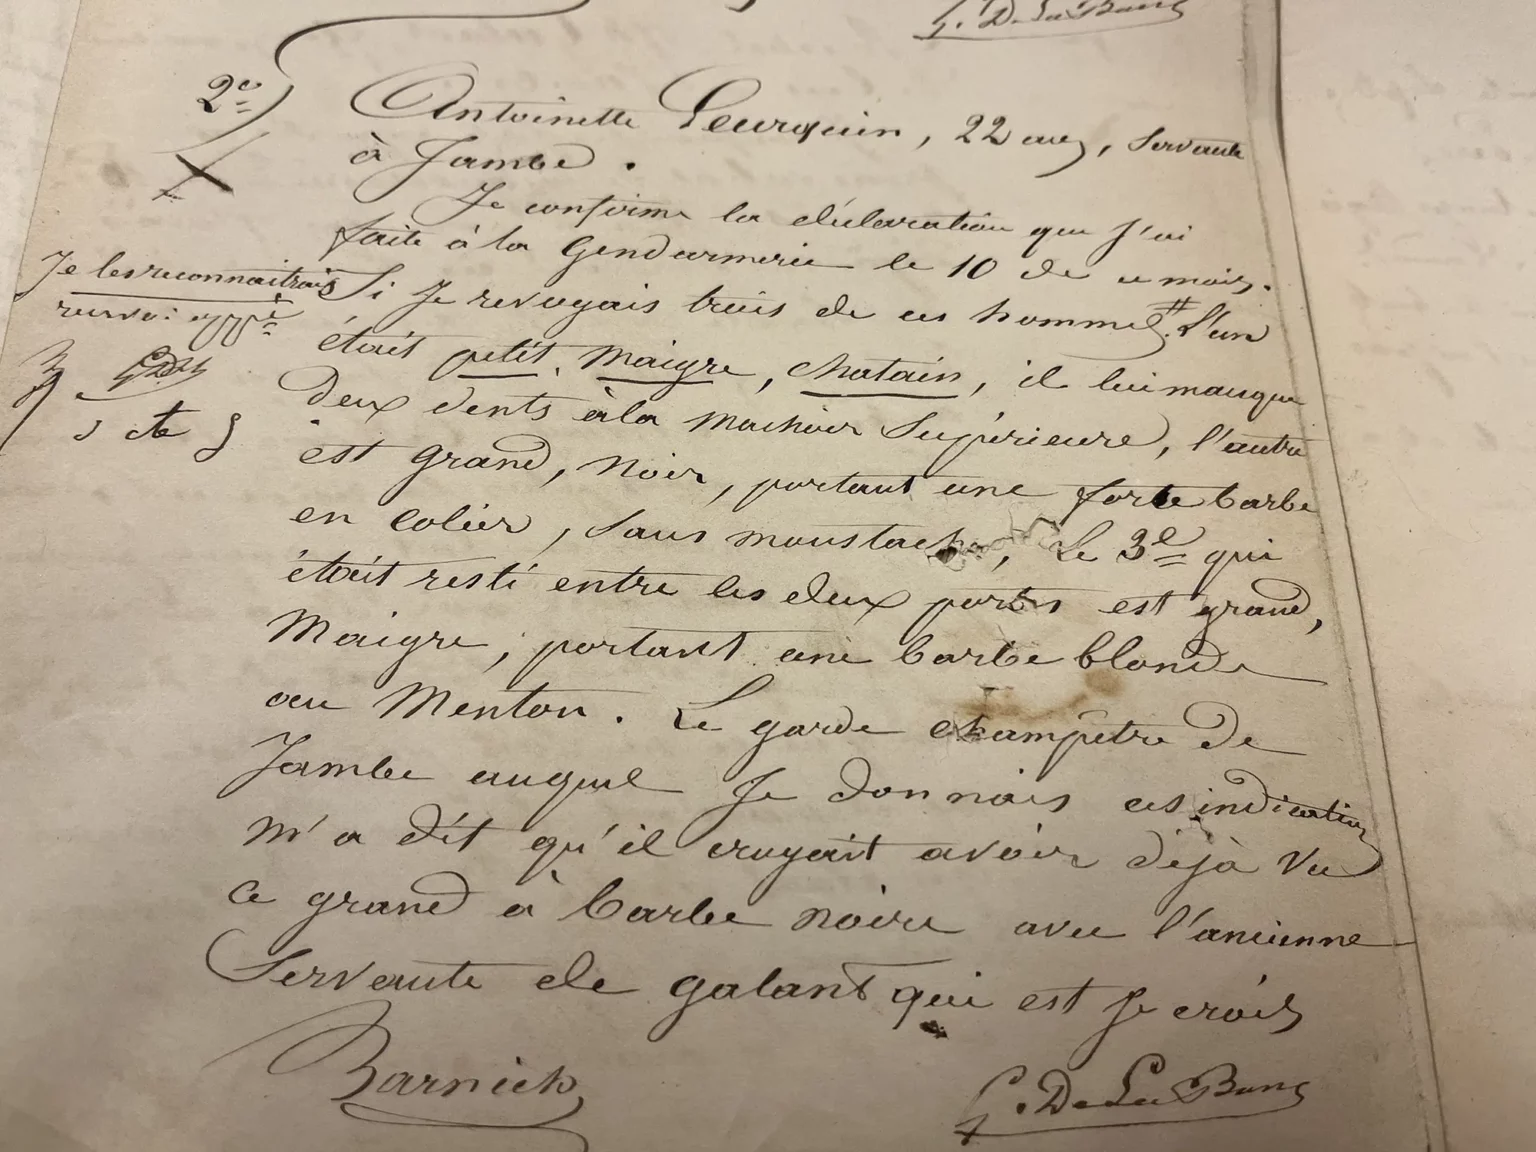 G. De La Barre
2e Antoinette Leurquin, 22 ans, servante
à Jambe.
Je confirme la déclaration que j'ai
faite à la Gendarmerie le 10 de ce mois.
Je les reconnaitrais
renvoi app
Si je revoyais trois de ces hommes # L'un
était petit, maigre, chatain, il lui manque
deux dents à la machoir Supérieure, l'autre
est grand, noir, portant une forte barbe
en colier, sans moustache, Le 3e qui
était resté entre les deux portes est grand,
Maigre, portant une barbe blonde
au Menton. Le garde champêtre de
Jambe auquel Je donnais ces indications
m'a dit qu'il croyait avoir déjà vu
ce grand à barbe noire avec l'ancienne
Servante de galant qui est je crois
Barnich
G. De La Barre